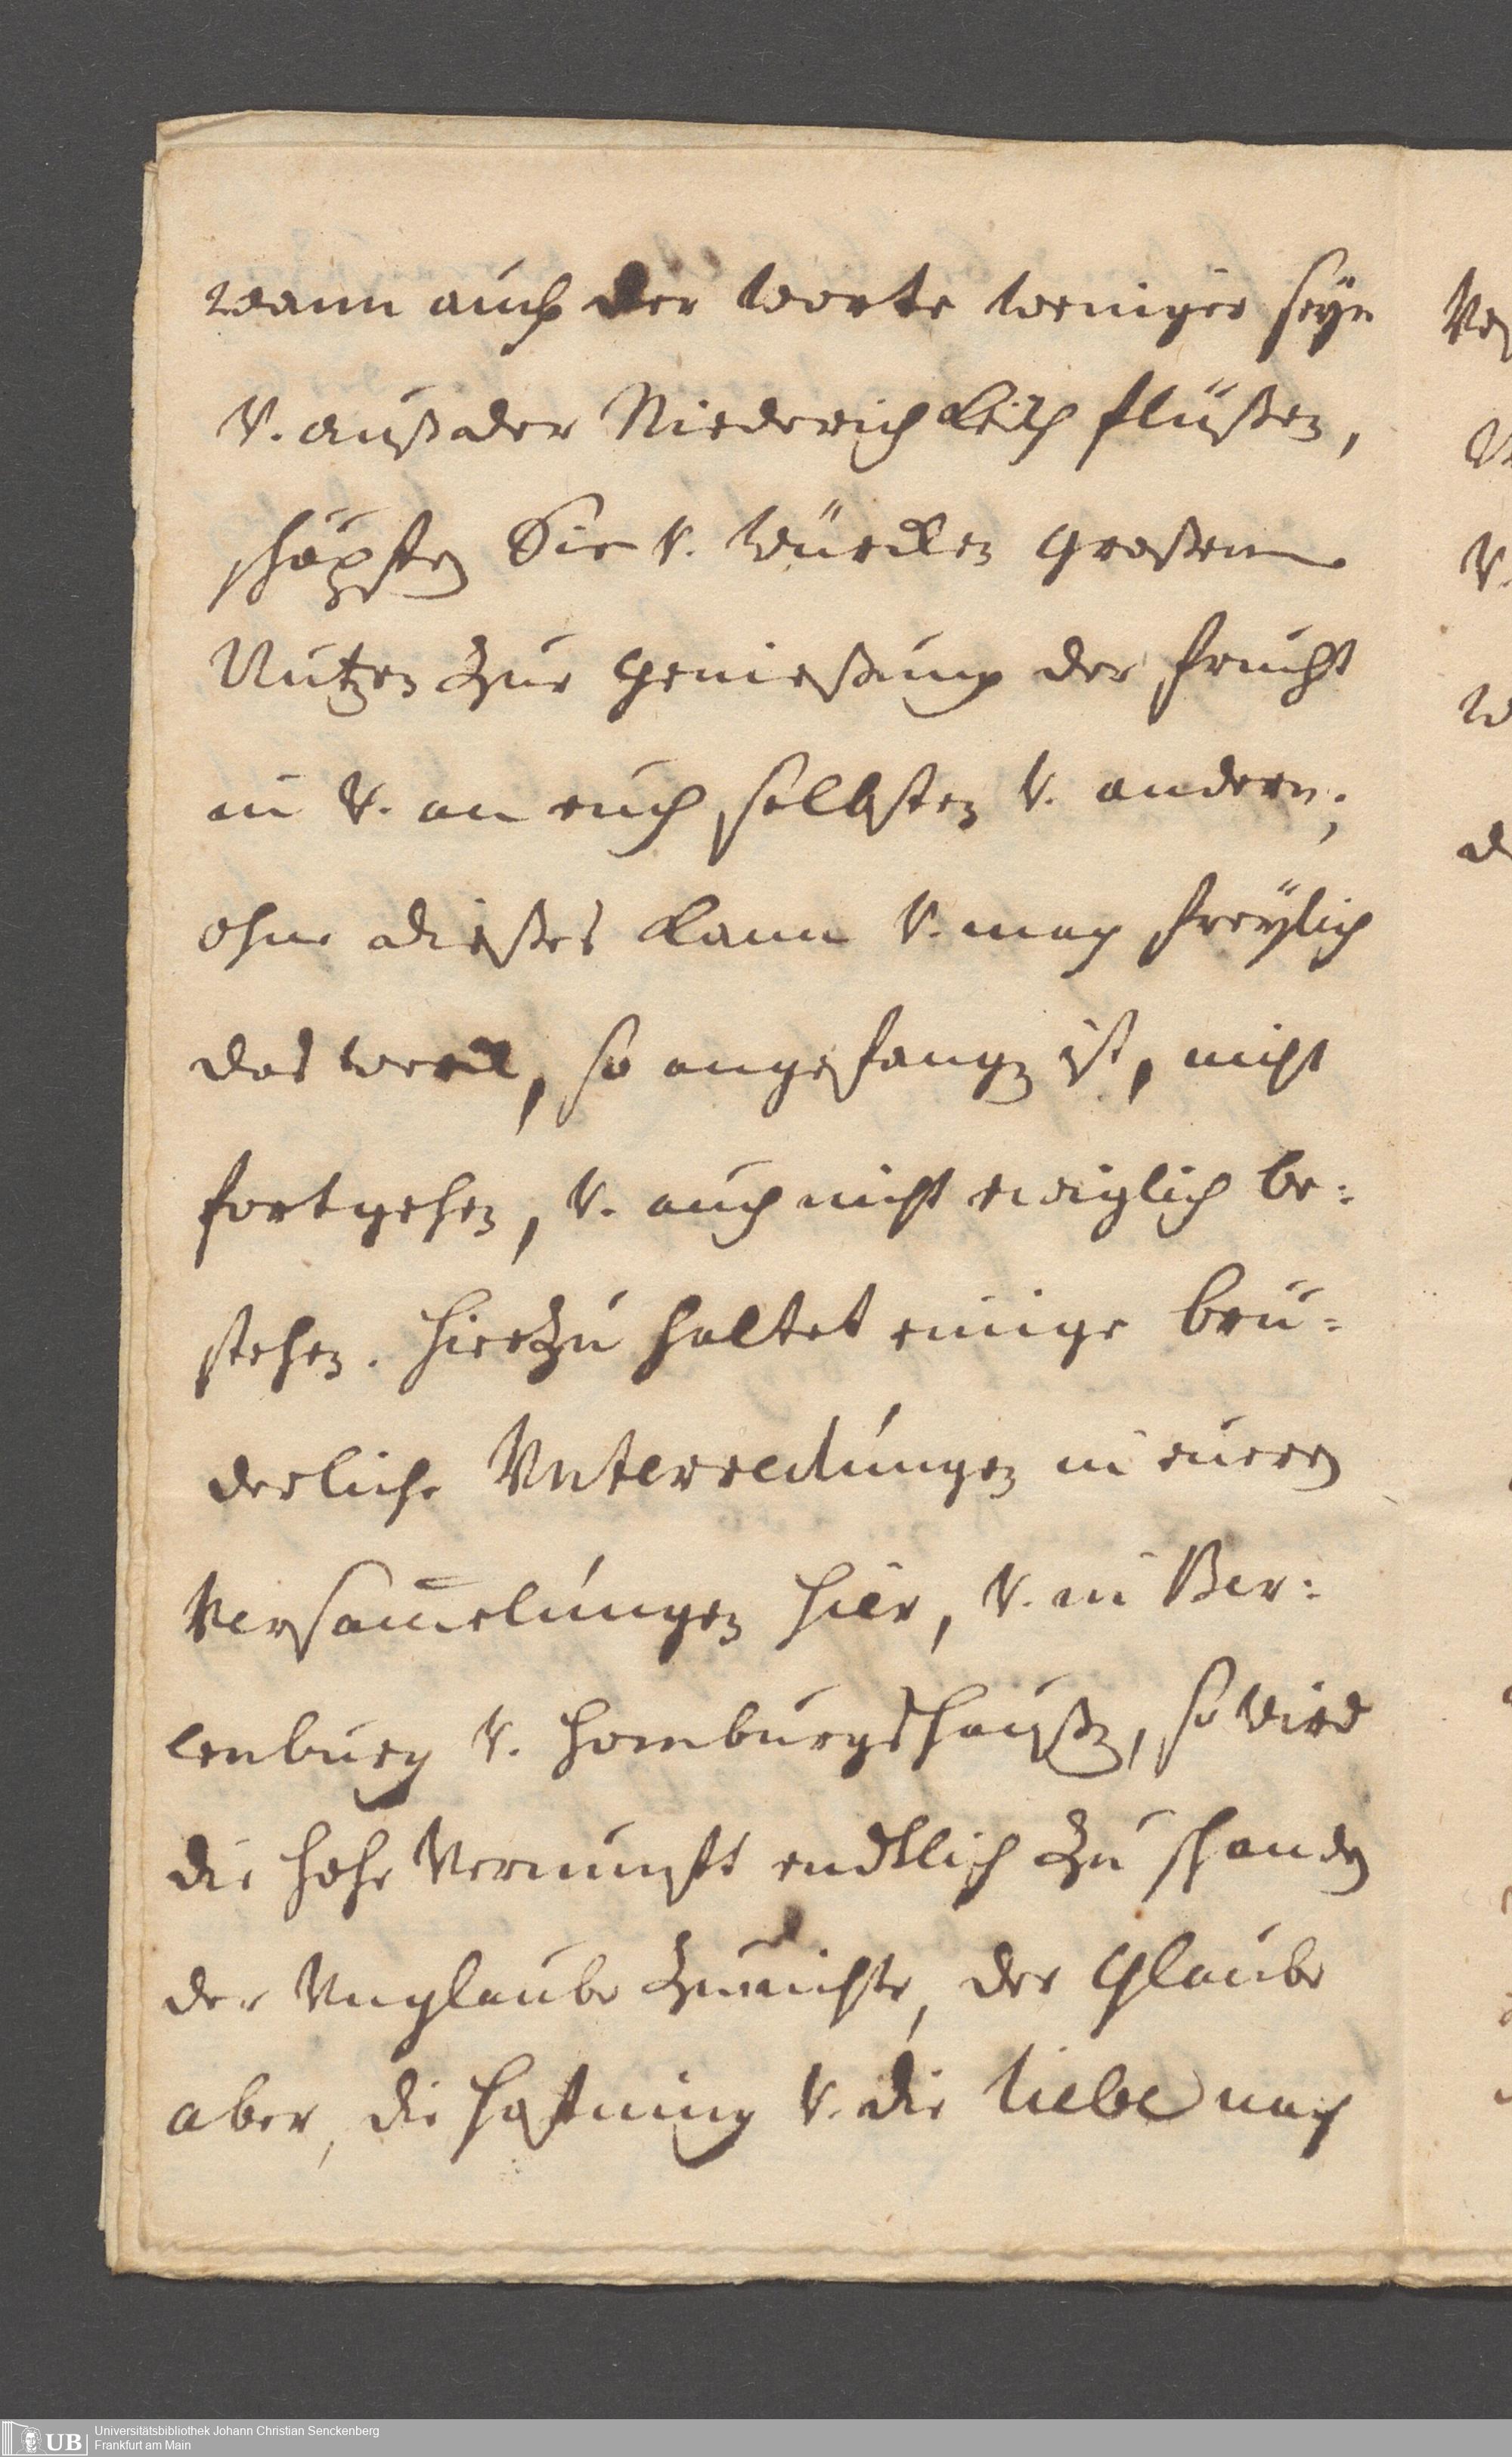 wann auch der worte weniger seÿn
V. auß der Niederich keit flüßen,
schöpfen Sie V. würcken großen
Nutzen zur genießung der frucht
in V. an euch selbsten V. andern;
ohne dießes kann V. mag freÿlich
das werck, so angefangen ist, nicht
fortgehen, V. auch nicht ewiglich be:
stehen. hierzu haltet einige brü:
derliche Unterredungen in euren
Versam̄elungen hier, V. in Ber:
lenburg V. Homburgshaußen, so wird
die hohe Vernunfft endtlich zu schanden
der Unglaube zunichte, der Glaube
aber, die Hofnung V. die Liebe nach
Universitätsbibliothek Johann Christian Senckenberg
Frankfurt am Main
UB